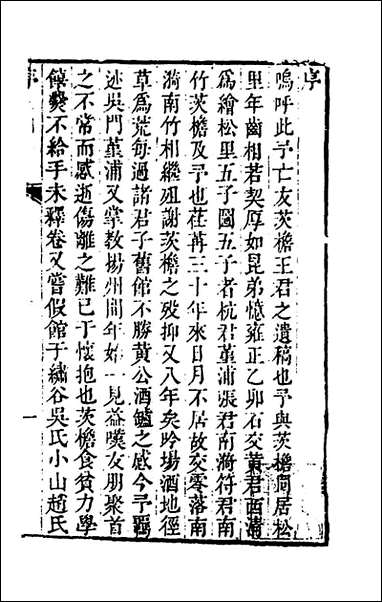 序
嗚呼此予亡友茨檐王君之遺稿也予與茨檐同居松
里年齒相若契厚如昆弟憶雍正乙卯石交黃君西清
爲繪松里五子圖五子者杭君堇浦張君南漪符君南
竹茨檐及予也荏苒三十年來日月不居故交零落南
漪南竹相繼殂謝茨檐之歿抑又八年矣吟場酒地徑
草爲荒每過諸君子舊館不勝黃公酒鱸之感今予羈
迹吳門堇浦又掌教揚州間年始一見益嘆友朋聚首
之不常而感逝傷離之難已于懷抱也茨檐食貧力學
爨不給手未釋卷又嘗假館于繡谷吳氏小山趙氏
一